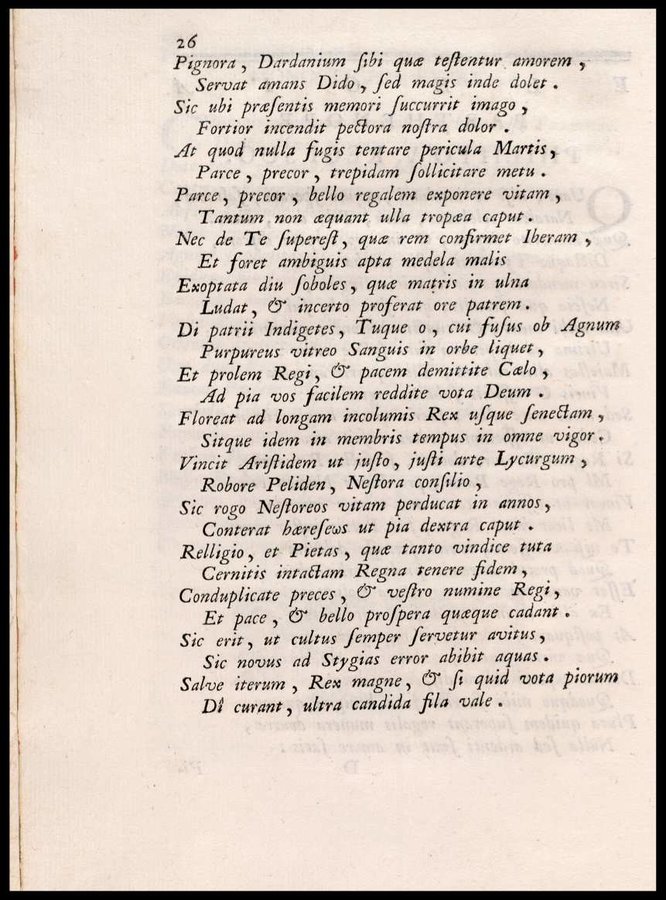 26
Pignora , Dardanium ſibi quæ teſtentur amorem ,
Servat amans Dido , ſed magis inde dolet .
Sic ubi præſentis memori ſuccurrit imago ,
Fortior incendit pectora noſtra dolor .
At quod nulla fugis tentare pericula Martis ,
Parce , precor , trepidam ſollicitare metu .
Parce , precor , bello regalem exponere vitam ,
Tantum non æquant ulla tropæa caput .
Nec de Te ſupereſt , quæ rem confirmet Iberam ,
Et foret ambiguis apta medela malis
Exoptata diu ſoboles , quæ matris in ulna
Ludat , & incerto proferat ore patrem .
Di patrii Indigetes , Tuque o , cui fuſus ob Agnum
Purpureus vitreo Sanguis in orbe liquet ,
Et prolem Regi , & pacem demittite Cælo ,
Ad pia vos facilem reddite vota Deum .
Floreat ad longam incolumis Rex uſque ſenectam ,
Sitque idem in membris tempus in omne vigor .
Vincit Ariſtidem ut juſto , juſti arte Lycurgum ,
Robore Peliden , Neſtora conſilio ,
Sic rogo Neſtoreos vitam perducat in annos ,
Conterat hæreſeωs ut pia dextra caput .
Relligio , et Pietas , quæ tanto vindice tuta
Cernitis intactam Regna tenere fidem ,
Conduplicate preces , & veſtro numine Regi ,
Et pace , & bello proſpera quæque cadant .
Sic erit , ut cultus ſemper ſervetur avitus ,
Sic novus ad Stygias error abibit aquas .
Salve iterum , Rex magne , & ſi quid vota piorum
Dî curant , ultra candida fila vale .